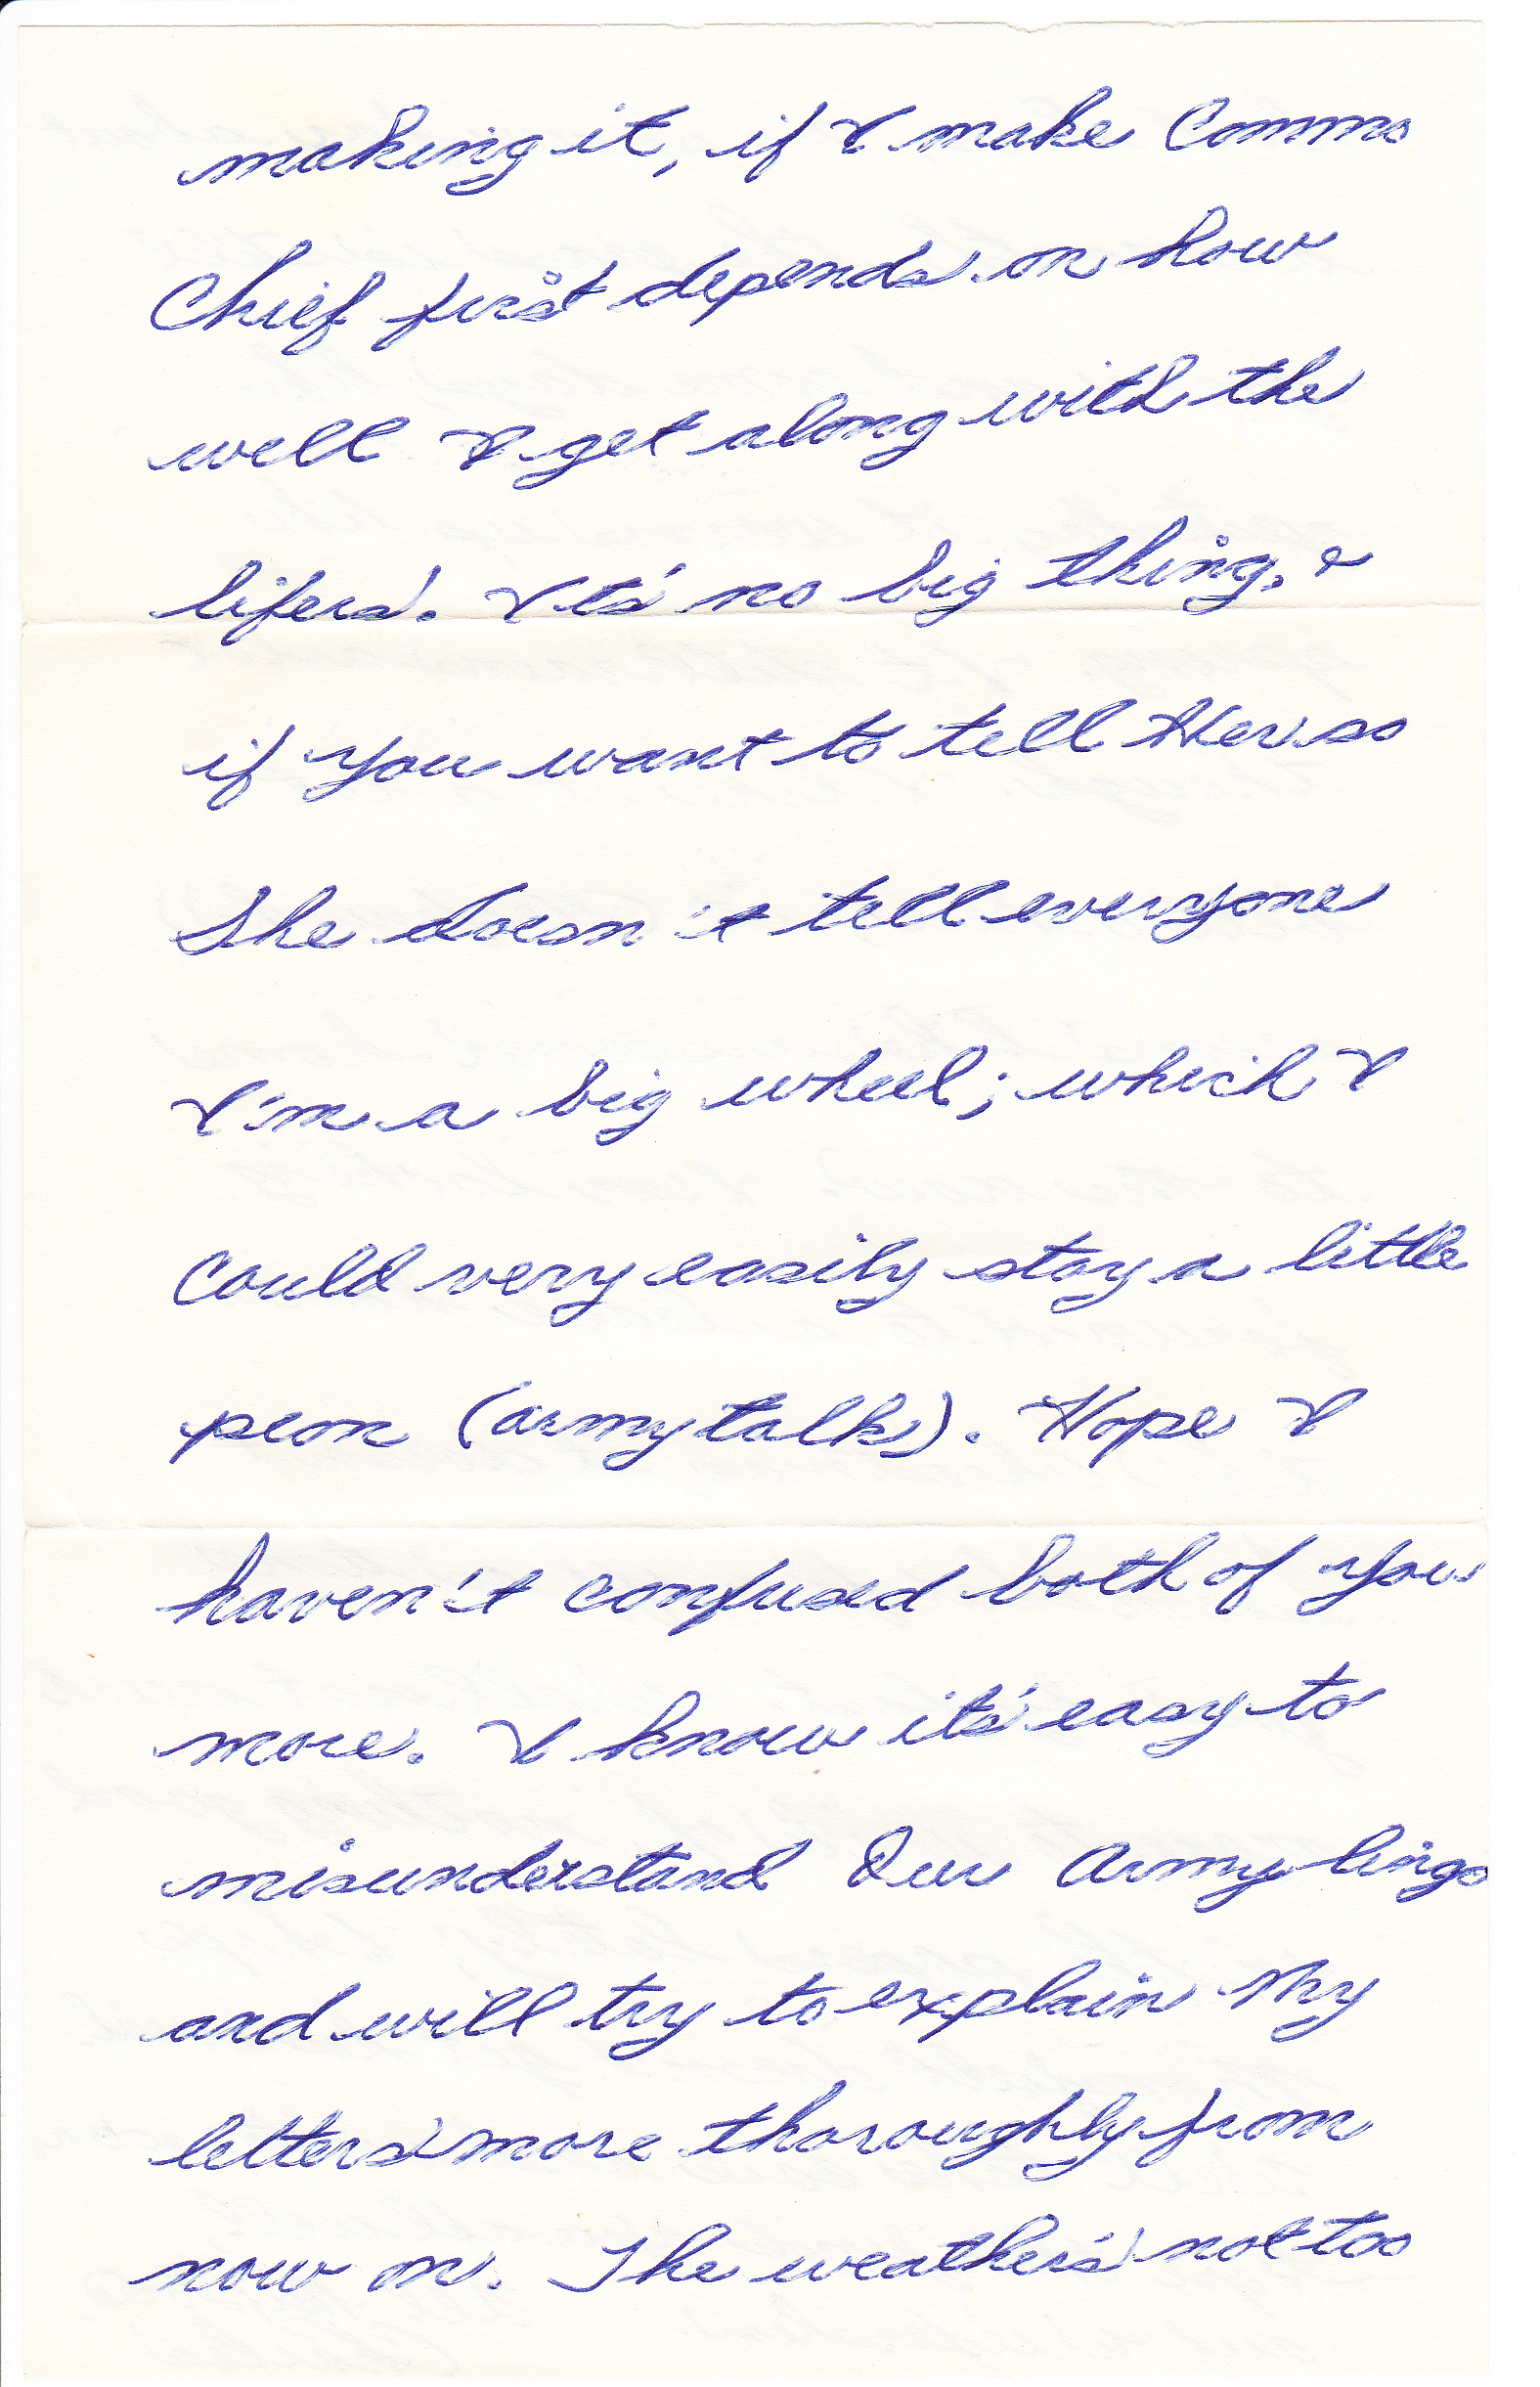 making it, if I make Commo
Chief first depends on how
well I get along with the
lifers. Its' no big thing, &
if you want to tell Her so
She doesn't tell everyone
I'm a big wheel; which I
Could very easily stay a little
peon (army talk). Hope I
haven't confused both of you
more. I know its' easy to
misunderstand Our Army lingo
and will try to explain My
letters more thoroughly from
now on. The weathers' not too